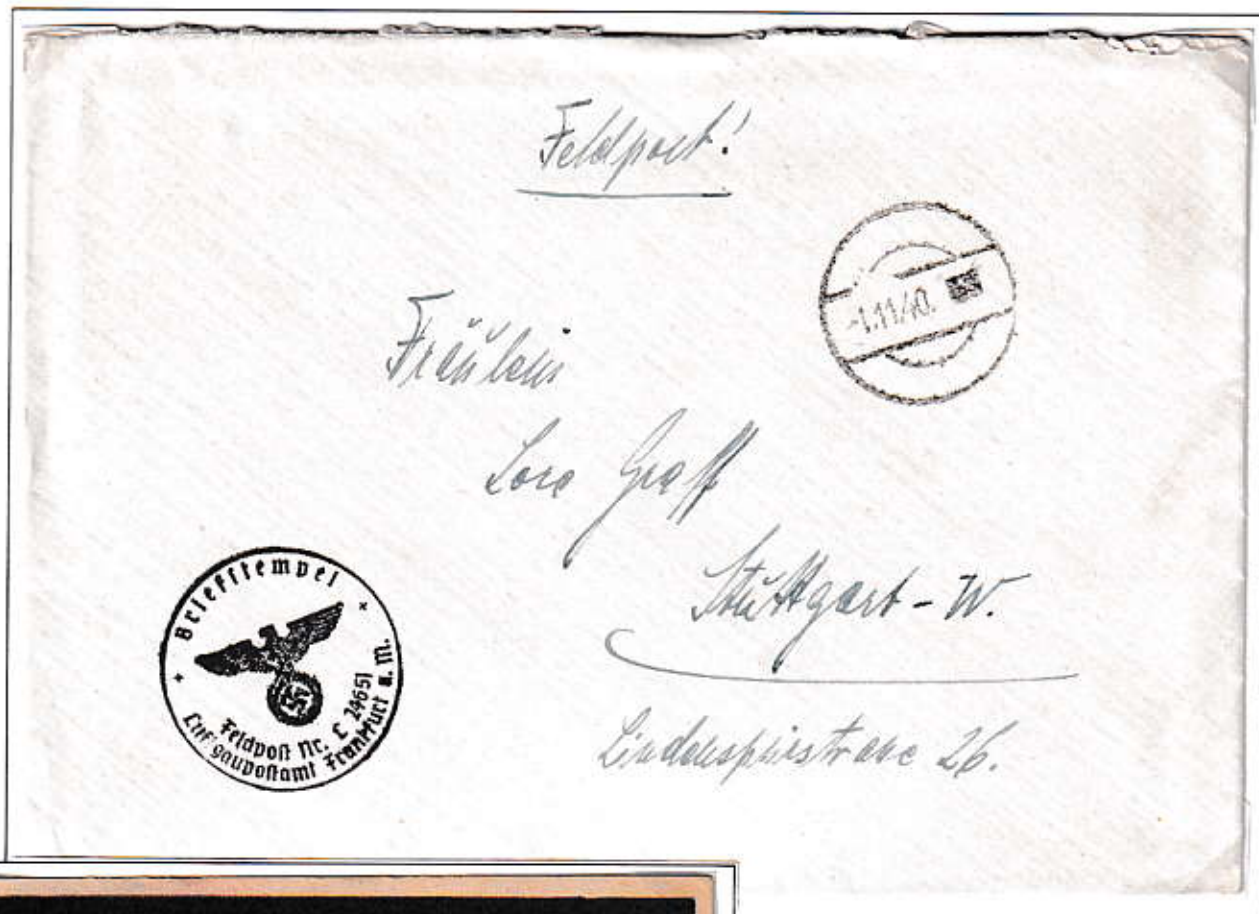 Feldpost!
-1.11.40.
Fräulein
Lore Graff
Stuttgart-W.
Lindenspürstrasse 26.
Briefstempel
Feldpost Nr. L 24651
Luftgaupostamt Frankfurt a. M.